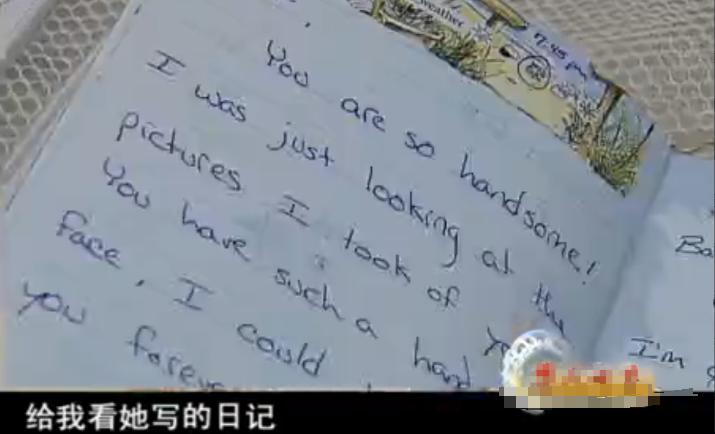 weather
7:45 pm
You are so handsome!
I was just looking at the
pictures I took of
You have such a hand
face, I could
you forever
Ba
I'm
给我看她写的日记